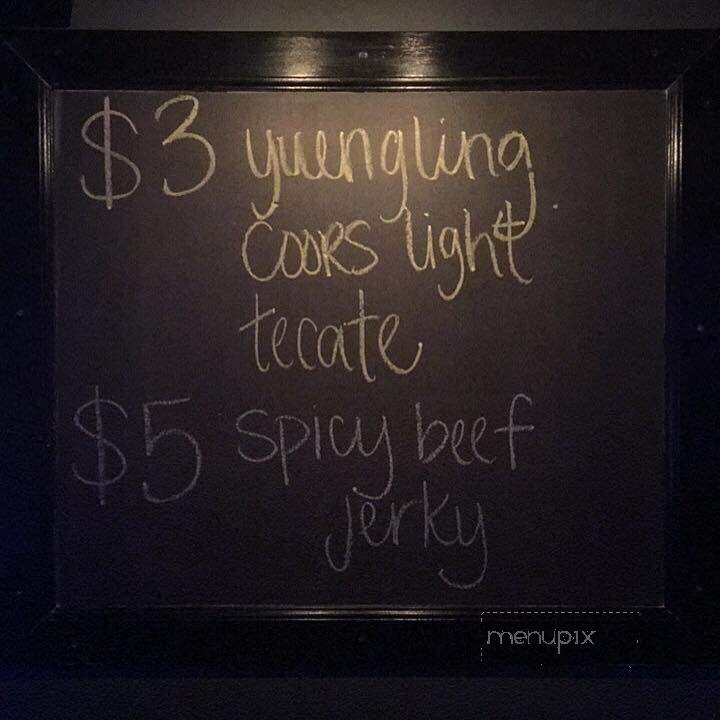 $3 yuengling
coors light
tecate
$5 spicy beef
jerky
menupix